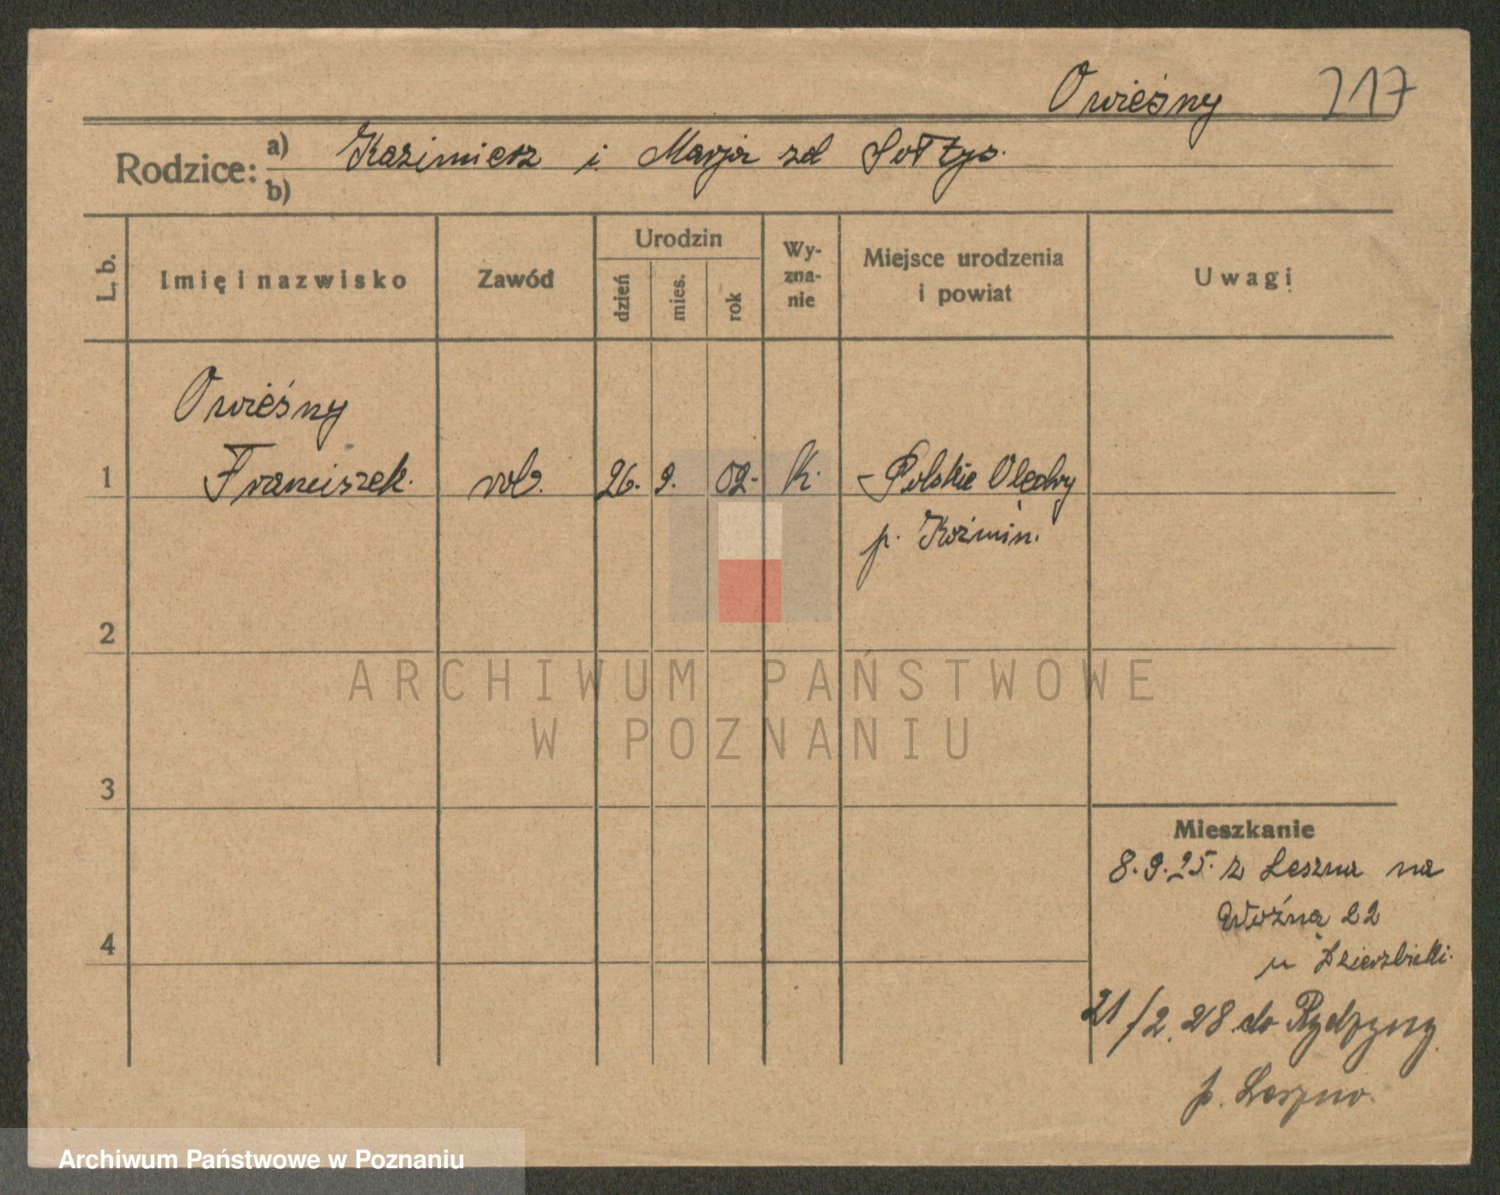 Owieśny 717
Rodzice: a) Kazimierz i Marja zd Sołtys.
b)
L. b. Imię i nazwisko Zawód Urodzin dzień mies. rok Wy-zna-nie Miejsce urodzenia i powiat Uwagi
Owieśny
1 Franciszek. rob. 26. 9. 02. K. Polskie Olędry
p. Koźmin.
2
3
4
Mieszkanie
8.9.25. z Leszna na
Woźną 22
u Dzierzbicki.
21/2.28 do Rydzyny
p. Leszno.
ARCHIWUM PAŃSTWOWE
W POZNANIU
Archiwum Państwowe w Poznaniu